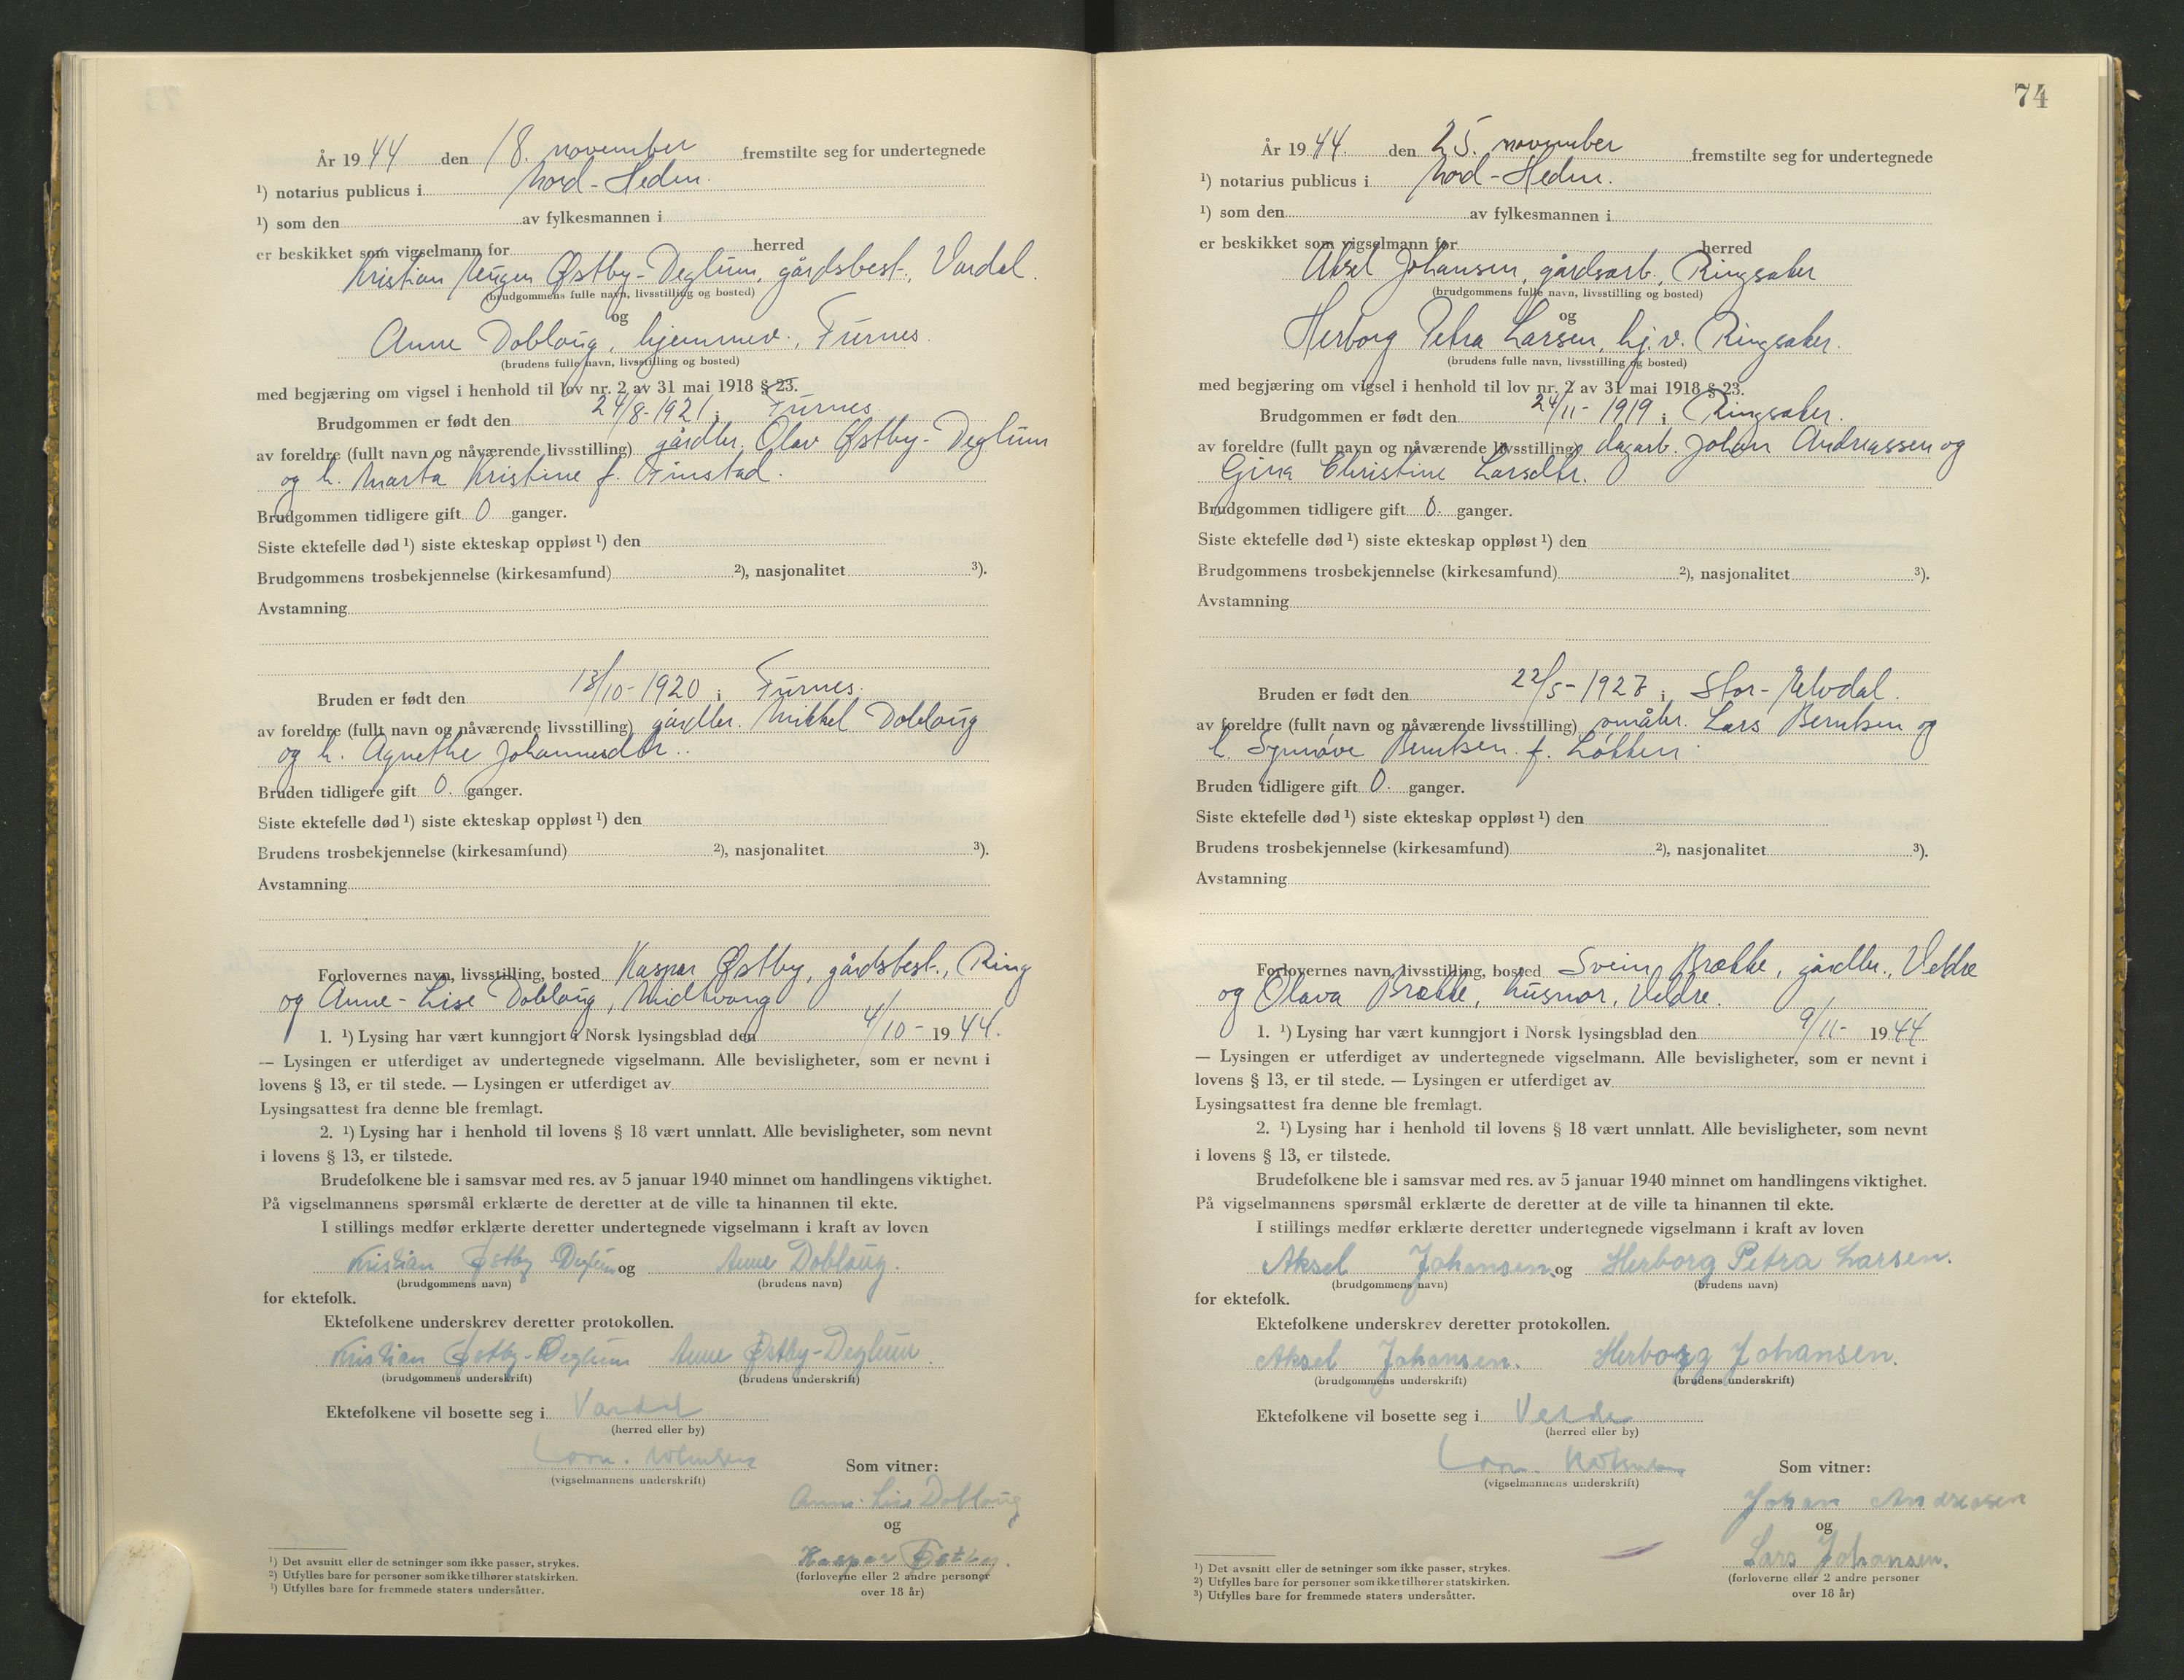 År 1944 den 18. november fremstilte seg for undertegnede
¹) notarius publicus i Nord-Hedm.
¹) som den av fylkesmannen i
er beskikket som vigselmann for herred
Kristian Eugen Østby-Deglum, gårdsbest., Vardal.
(brudgommens fulle navn, livsstilling og bosted)
og
Anne Dobloug, hjemmev., Furnes.
(brudens fulle navn, livsstilling og bosted)
med begjæring om vigsel i henhold til lov nr. 2 av 31 mai 1918 § 23.
Brudgommen er født den 24/8-1921 i Furnes
av foreldre (fullt navn og nåværende livsstilling) gårdbr. Olav Østby-Deglum
og h. Marta Kristine f. Finstad.
Brudgommen tidligere gift 0 ganger.
Siste ektefelle død ¹) siste ekteskap oppløst ¹) den
Brudgommens trosbekjennelse (kirkesamfund) ²), nasjonalitet ³).
Avstamning
Bruden er født den 13/10-1920 i Furnes.
av foreldre (fullt navn og nåværende livsstilling) gårdbr. Mikkel Dobloug
og h. Agnethe Johannesdtr..
Bruden tidligere gift 0. ganger.
Siste ektefelle død ¹) siste ekteskap oppløst ¹) den
Brudens trosbekjennelse (kirkesamfund) ²), nasjonalitet ³).
Avstamning
Forlovernes navn, livsstilling, bosted Kaspar Østby, gårdsbest., Ring
og Anne-Lise Dobloug, Midtvang
1. ¹) Lysing har vært kunngjort i Norsk lysingsblad den 4/10- 1944.
— Lysingen er utferdiget av undertegnede vigselmann. Alle bevisligheter, som er nevnt i
lovens § 13, er til stede. — Lysingen er utferdiget av
Lysingsattest fra denne ble fremlagt.
2. ¹) Lysing har i henhold til lovens § 18 vært unnlatt. Alle bevisligheter, som nevnt
i lovens § 13, er tilstede.
Brudefolkene ble i samsvar med res. av 5 januar 1940 minnet om handlingens viktighet.
På vigselmannens spørsmål erklærte de deretter at de ville ta hinannen til ekte.
I stillings medfør erklærte deretter undertegnede vigselmann i kraft av loven
Kristian Østby Deglum og Anne Dobloug.
(brudgommens navn) (brudens navn)
for ektefolk.
Ektefolkene underskrev deretter protokollen.
Kristian Østby-Deglum Anne Østby-Deglum.
(brudgommens underskrift) (brudens underskrift)
Ektefolkene vil bosette seg i Vardal
(herred eller by)
(vigselmannens underskrift)
Som vitner:
Anne-Lise Dobloug
og
Kaspar Østby.
(forloverne eller 2 andre personer
over 18 år)
¹) Det avsnitt eller de setninger som ikke passer, strykes.
²) Utfylles bare for personer som ikke tilhører statskirken.
³) Utfylles bare for fremmede staters undersåtter.
74
År 1944. den 25. november fremstilte seg for undertegnede
¹) notarius publicus i Nord-Hedm.
¹) som den av fylkesmannen i
er beskikket som vigselmann for herred
Aksel Johansen, gårdsarb., Ringsaker
(brudgommens fulle navn, livsstilling og bosted)
og
Herborg Petra Larsen, hj.v. Ringsaker.
(brudens fulle navn, livsstilling og bosted)
med begjæring om vigsel i henhold til lov nr. 2 av 31 mai 1918 § 23.
Brudgommen er født den 24/11-1919 i Ringsaker.
av foreldre (fullt navn og nåværende livsstilling) dagarb. Johan Andreassen og
Gina Christine Larsdtr.
Brudgommen tidligere gift 0. ganger.
Siste ektefelle død ¹) siste ekteskap oppløst ¹) den
Brudgommens trosbekjennelse (kirkesamfund) ²), nasjonalitet ³).
Avstamning
Bruden er født den 22/5-1927 i Stor-Elvdal.
av foreldre (fullt navn og nåværende livsstilling) småbr. Lars Berntsen og
h. Synnøve Berntsen f. Løkken
Bruden tidligere gift 0. ganger.
Siste ektefelle død ¹) siste ekteskap oppløst ¹) den
Brudens trosbekjennelse (kirkesamfund) ²), nasjonalitet ³).
Avstamning
Forlovernes navn, livsstilling, bosted Svein Brække, gårdbr., Veldre
og Olava Brække, husmor, Veldre.
1. ¹) Lysing har vært kunngjort i Norsk lysingsblad den 9/11- 1944
— Lysingen er utferdiget av undertegnede vigselmann. Alle bevisligheter, som er nevnt i
lovens § 13, er til stede. — Lysingen er utferdiget av
Lysingsattest fra denne ble fremlagt.
2. ¹) Lysing har i henhold til lovens § 18 vært unnlatt. Alle bevisligheter, som nevnt
i lovens § 13, er tilstede.
Brudefolkene ble i samsvar med res. av 5 januar 1940 minnet om handlingens viktighet.
På vigselmannens spørsmål erklærte de deretter at de ville ta hinannen til ekte.
I stillings medfør erklærte deretter undertegnede vigselmann i kraft av loven
Aksel Johansen. og Herborg Petra Larsen.
(brudgommens navn) (brudens navn)
for ektefolk.
Ektefolkene underskrev deretter protokollen.
Aksel Johansen. Herborg Johansen.
(brudgommens underskrift) (brudens underskrift)
Ektefolkene vil bosette seg i Veldre
(herred eller by)
(vigselmannens underskrift)
Som vitner:
Johan Andreasen
og
Lars Johansen.
(forloverne eller 2 andre personer
over 18 år)
¹) Det avsnitt eller de setninger som ikke passer, strykes.
²) Utfylles bare for personer som ikke tilhører statskirken.
³) Utfylles bare for fremmede staters undersåtter.